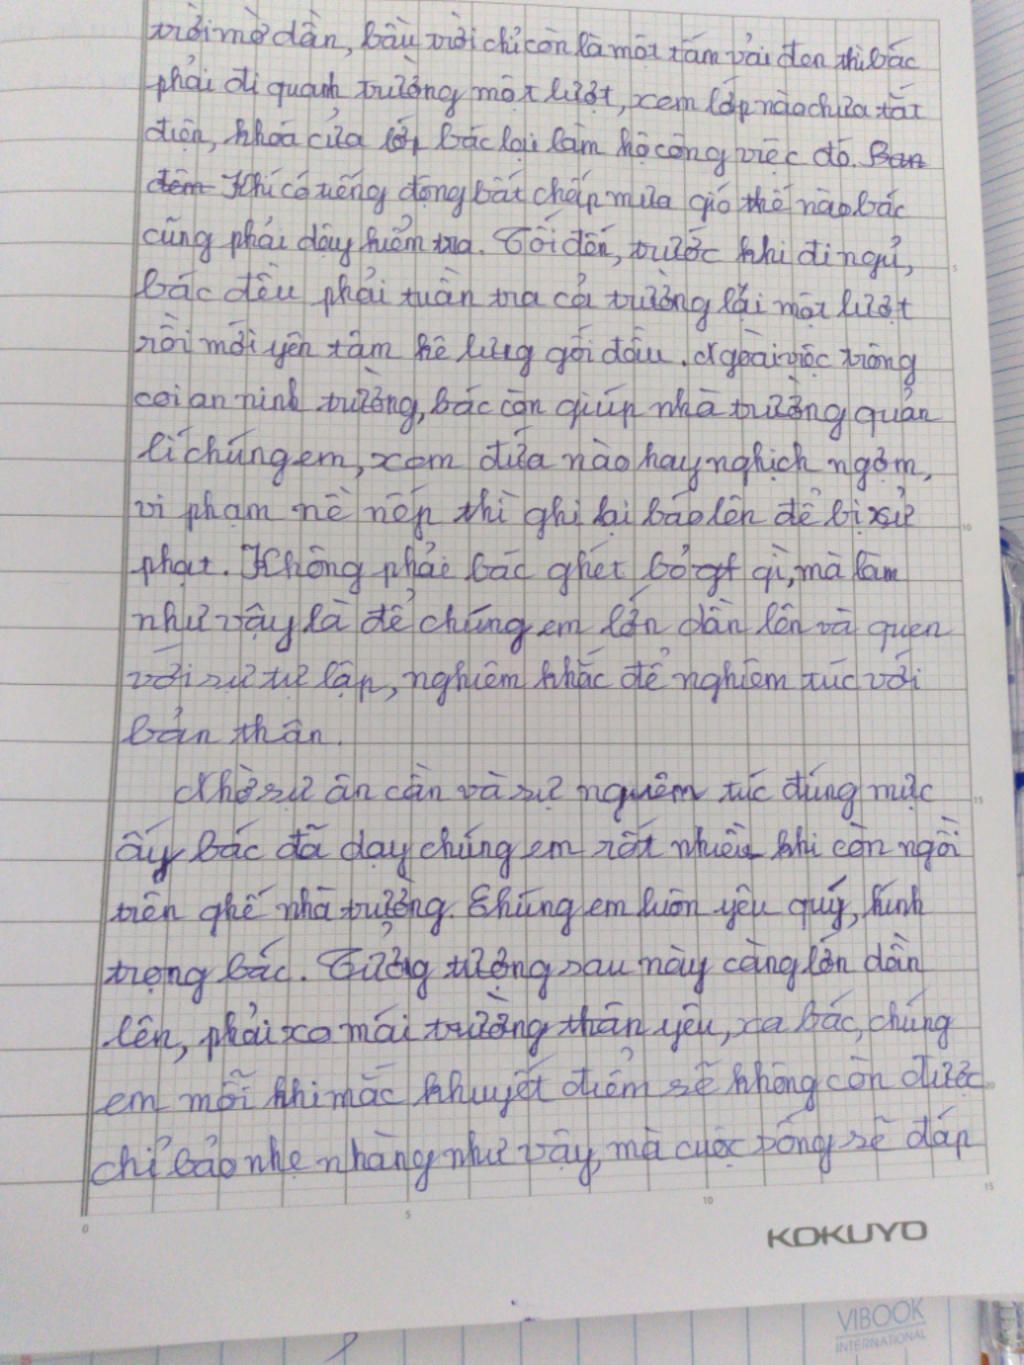 trời mờ dần, bầu trời chỉ còn là một tấm vải đen thì bác
phải đi quanh trường một lượt, xem lớp nào chưa tắt
điện, khoá cửa lớp bác lại làm hộ công việc đó. Ban
đêm Khi có tiếng động bất chấp mưa gió thế nào bác
cũng phải dậy kiểm tra. Tối đến, trước khi đi ngủ,
bác đều phải tuần tra cả trường lại một lượt
rồi mới yên tâm kê lưng gối đầu. Ngoài việc trông
coi an ninh trường, bác còn giúp nhà trường quản
lí chúng em, xem đứa nào hay nghịch ngợm,
vi phạm nề nếp thì ghi lại báo lên để bị xử
phạt. Không phải bác ghét bỏ gì, mà làm
như vậy là để chúng em lớn dần lên và quen
với sự tự lập, nghiêm khắc để nghiêm túc với
bản thân.
Nhờ sự ân cần và sự nguêm túc đúng mực
ấy bác đã dạy chúng em rất nhiều khi còn ngồi
trên ghế nhà trường. Chúng em luôn yêu quý, kính
trọng bác. Tưởng tượng sau này càng lớn dần
lên, phải xa mái trường thân yêu, xa bác, chúng
em mỗi khi mắc khuyết điểm sẽ không còn được
chỉ bảo nhẹ nhàng như vậy, mà cuộc sống sẽ đáp
5
10
15
20
0
5
10
15
KOKUYO
VIBOOK
INTERNATIONAL